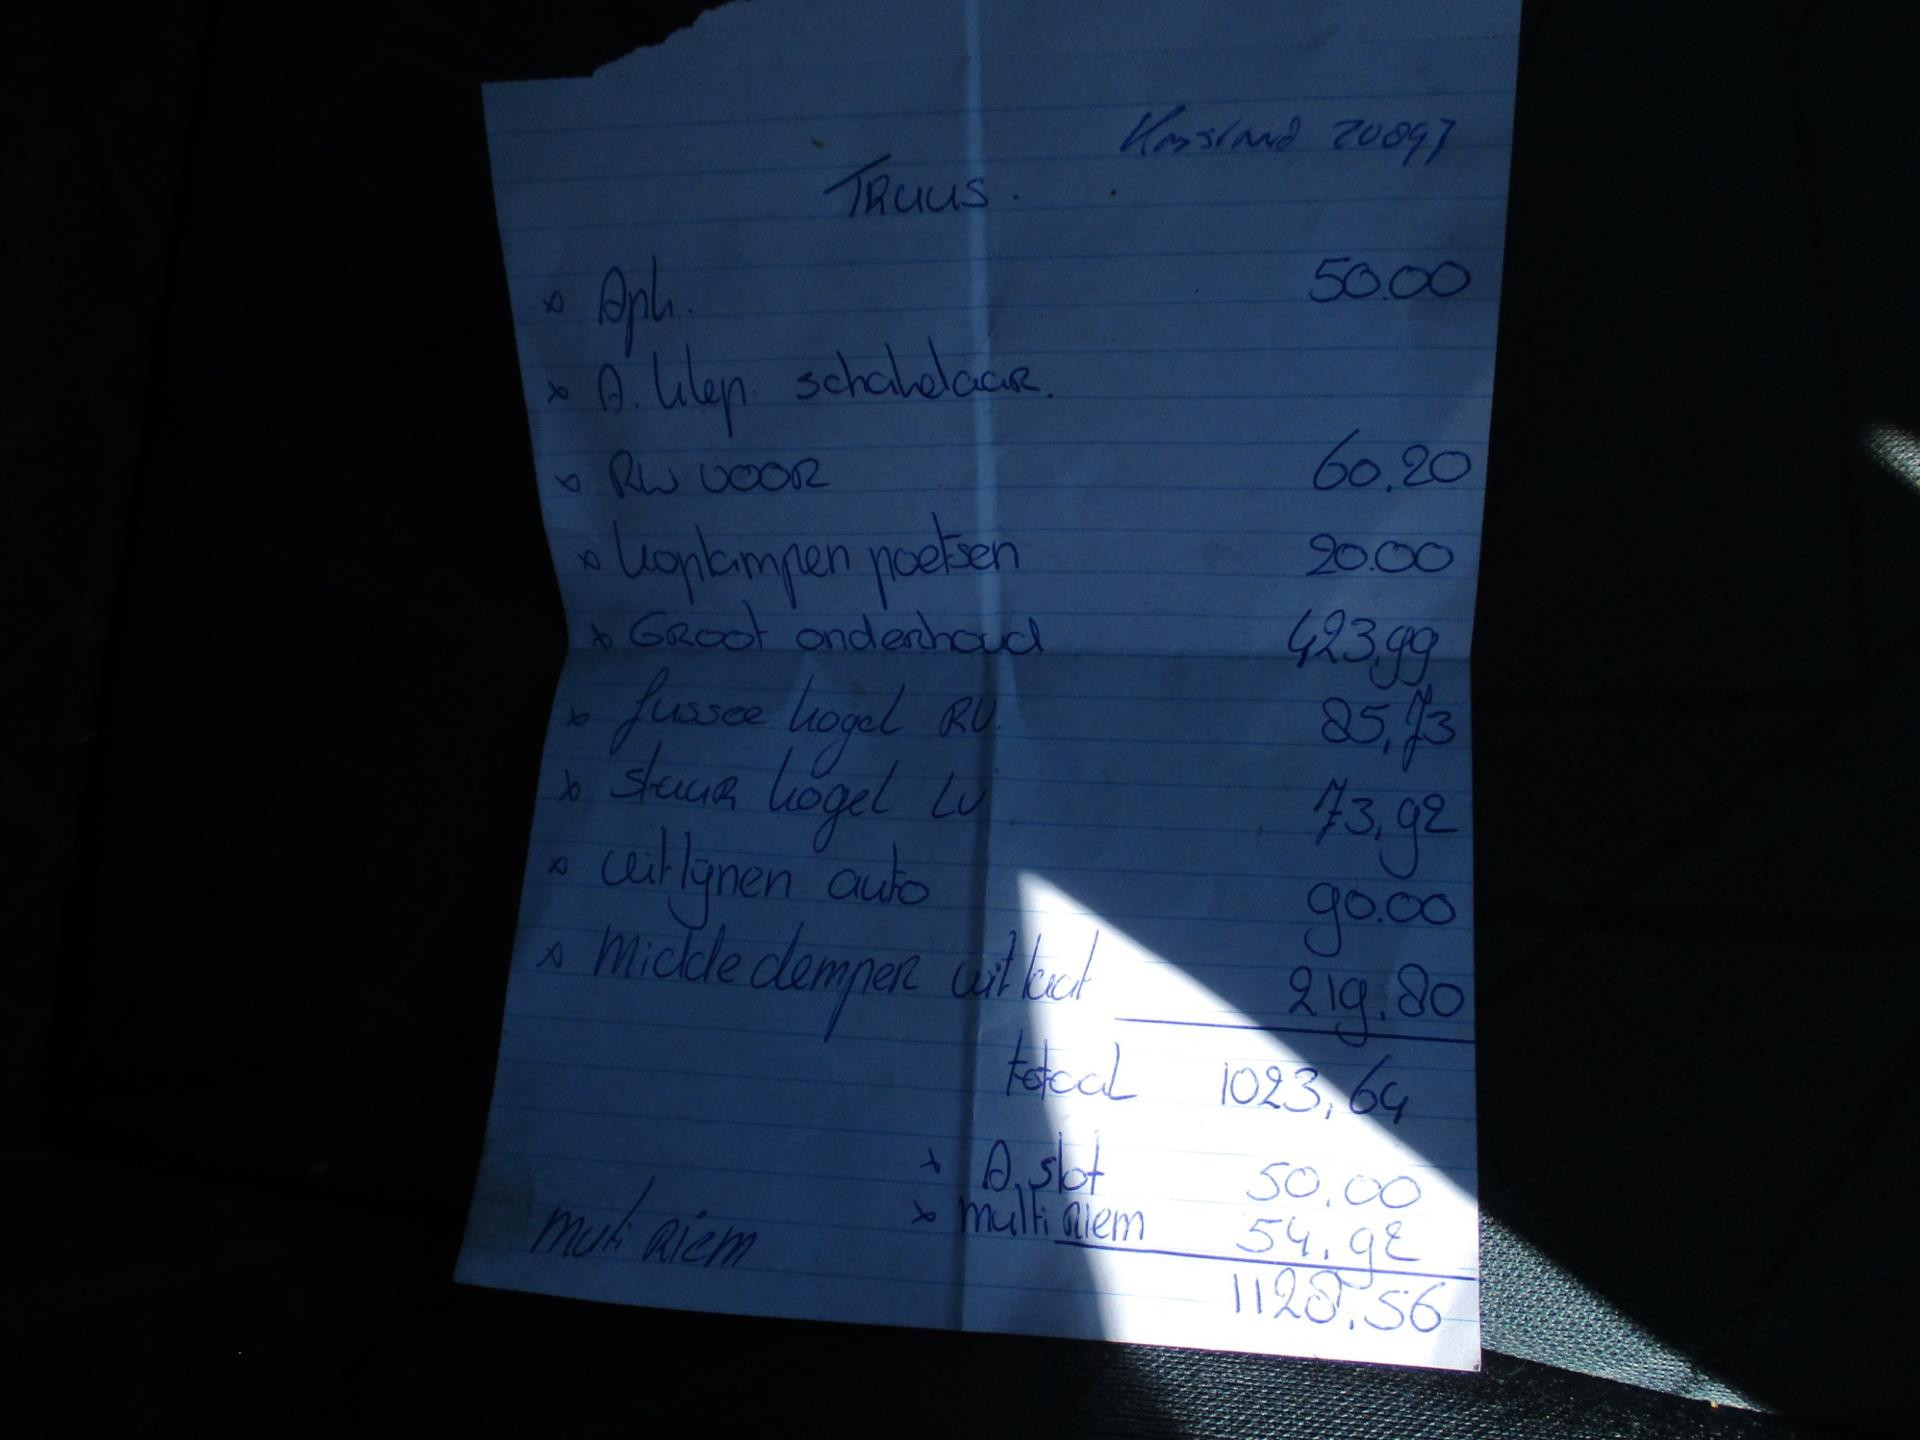 Kmstand 20897
TRUUS.
x Apk. 50.00
x A. klep. schakelaar.
x RW VOOR 60.20
x koplampen poetsen 20.00
x GROOT onderhoud 423,99
x fussee kogel RV. 85,73
x stuur kogel LV 73,92
x uitlijnen auto 90.00
x Midde demper uitlaat 219.80
totaal 1023,64
x A. slot 50.00
x multi Riem 54,92
muti Riem
1128.56